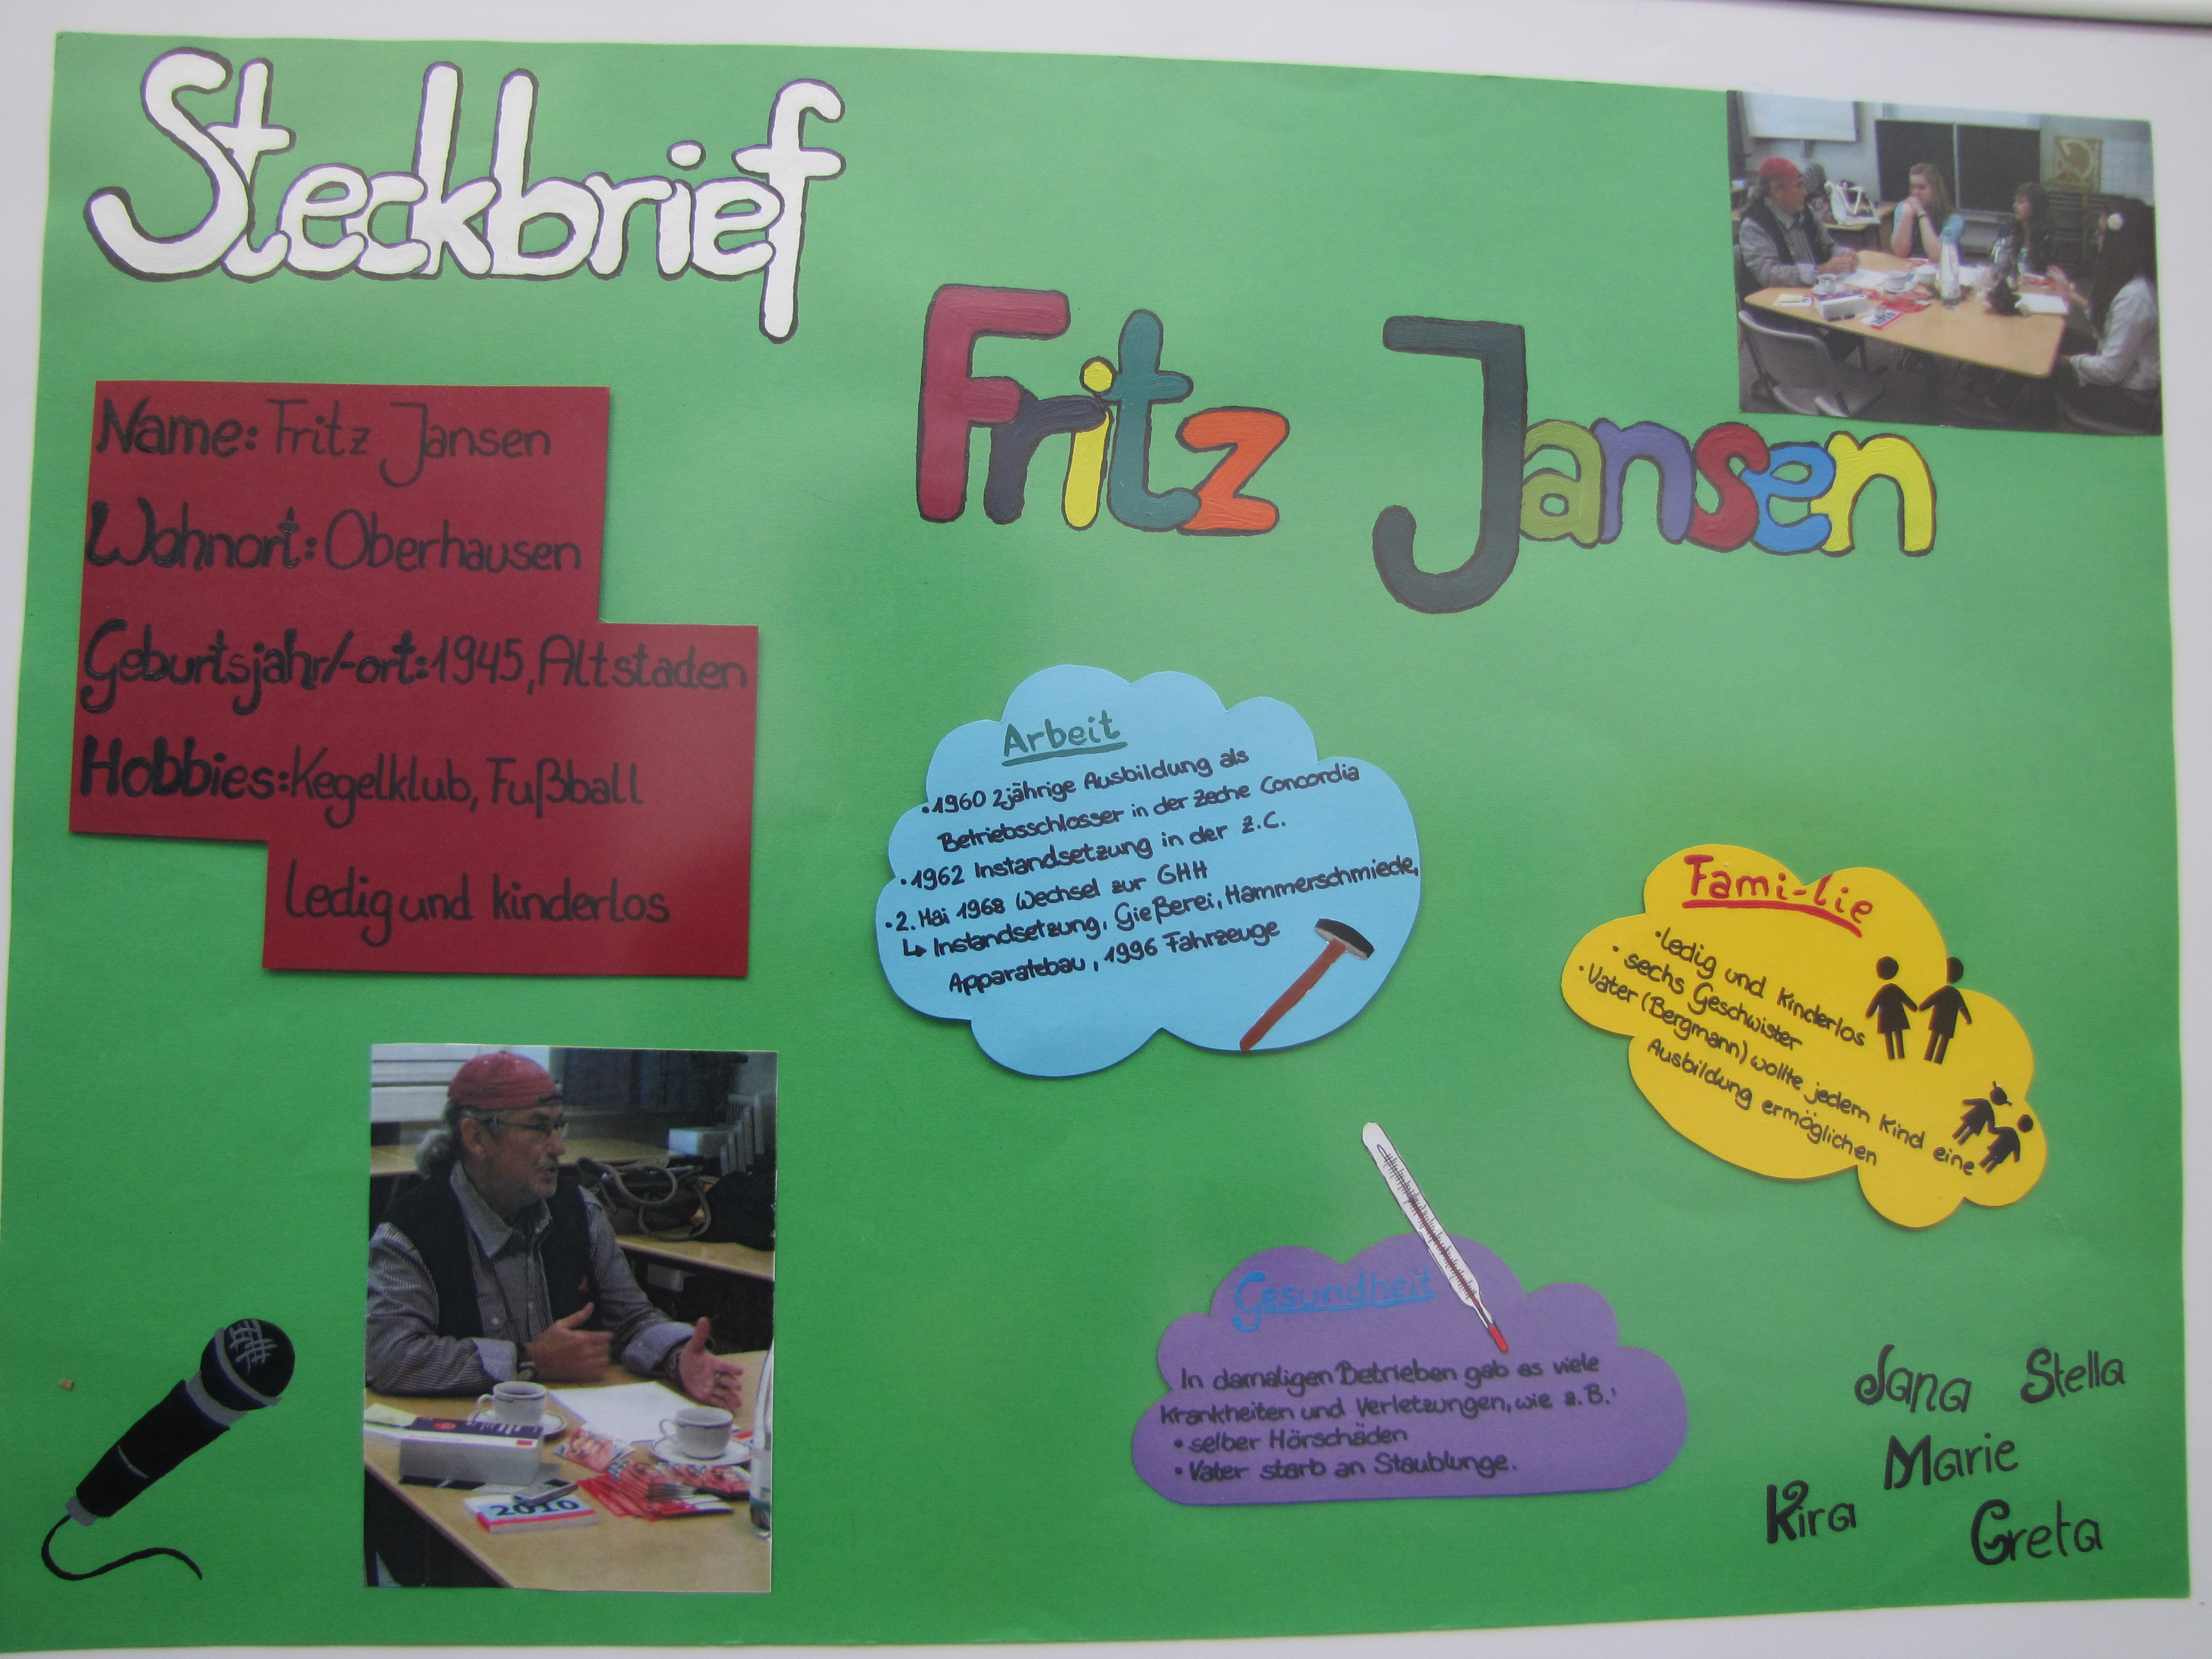 Steckbrief
Fritz Jansen
Name: Fritz Jansen
Wohnort: Oberhausen
Geburtsjahr/-ort: 1945, Altstaden
Hobbies: Kegelklub, Fußball
Ledig und kinderlos
Arbeit
• 1960 2jährige Ausbildung als
Betriebsschlosser in der Zeche Concordia
• 1962 Instandsetzung in der Z.C.
• 2. Mai 1968 Wechsel zur GHH
↳ Instandsetzung, Gießerei, Hammerschmiede,
Apparatebau, 1996 Fahrzeuge
Fami-lie
• ledig und kinderlos
• sechs Geschwister
• Vater (Bergmann) wollte jedem Kind eine
Ausbildung ermöglichen
Gesundheit
In damaligen Betrieben gab es viele
Krankheiten und Verletzungen, wie z.B.:
• selber Hörschäden
• Vater starb an Staublunge.
2010
Jana Stella
Marie
Kira
Greta